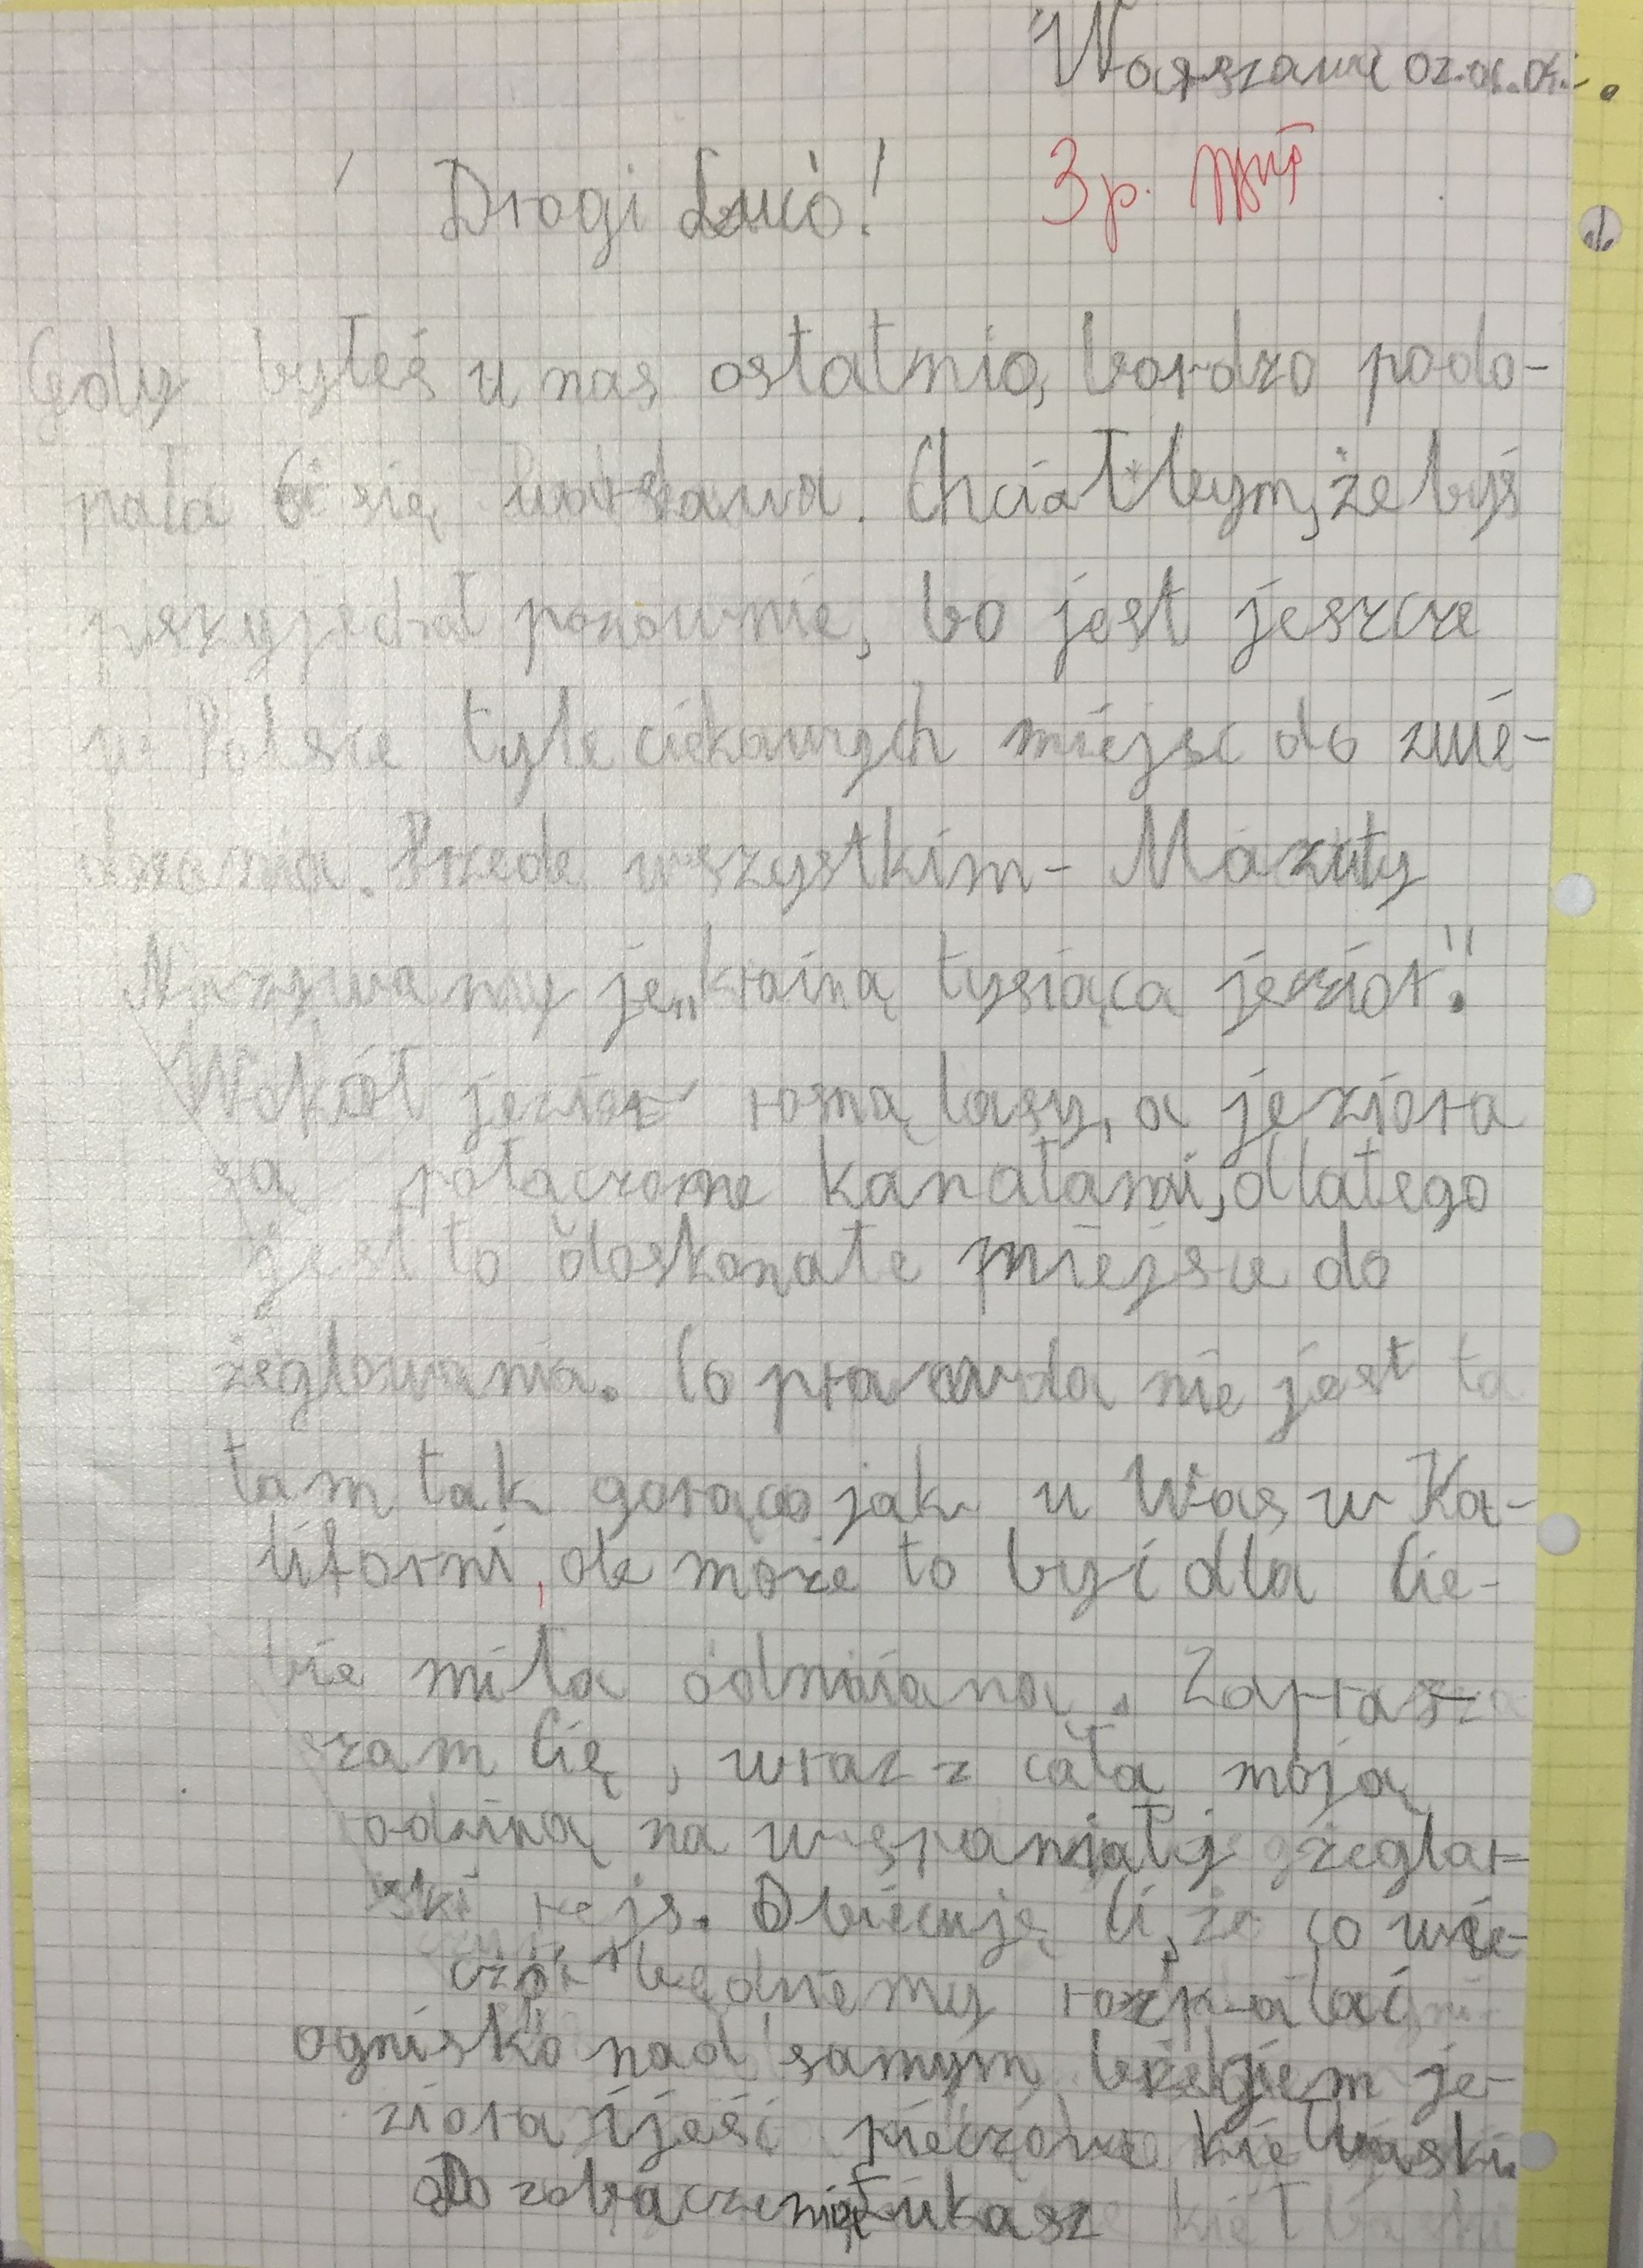 Warszawa 02.06.04.
Drogi ! 3p.
Gdy byłeś u nas ostatnio, bardzo podo-
pała Ci się Warszawa. Chciałbym, żebyś
przyjechał ponownie, bo jest jeszcze
w Polsce tyle ciekawych miejsc do zwie-
dzania. Przede wszystkim - Mazury
Nazywamy je „krainą tysiąca jezior".
Wokół jezior rosną lasy, a jeziora
są połączone kanałami, dlatego
jest to doskonałe miejsce do
żeglowania. Co prawda nie jest ta
tam tak gorąco jak u Was w Ka-
liforni, ale może to być dla Cie-
bie miła odmiana. Zaprasz
zam Cię, wraz z całą moją
rodziną na wspaniały żeglar-
ski rejs. Obiecuję Ci, że co wie-
czór będziemy rozpalać
ognisko nad samym brzegiem je-
ziora i jeść pieczone kiełbaski.
Do zobaczenia Łukasz